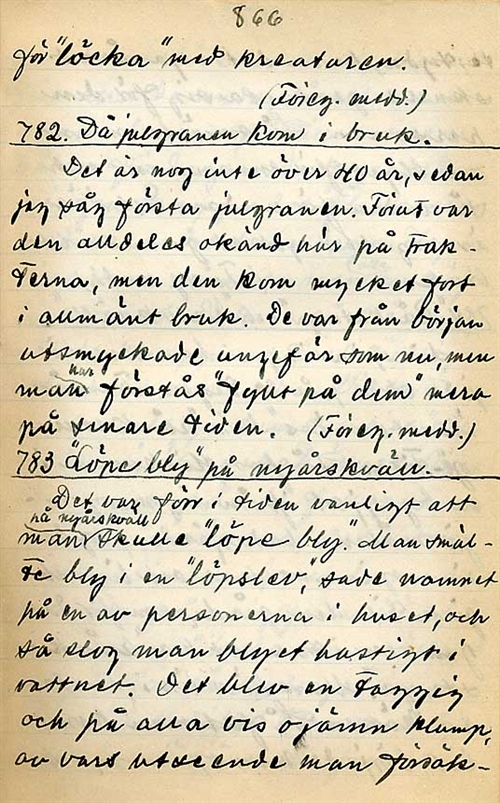 866
för "löcka" med kreaturen.
(Föreg. medd.)
782. Då julgranen kom i bruk.
Det är nog inte över 40 år, sedan
jag såg första julgranen. Förut var
den alldeles okänd här på trak-
terna, men den kom mycket fort
i allmänt bruk. De var från början
utsmyckade ungefär som nu, men
man har förstås "fyllt på dem" mera
på senare tiden. (Föreg. medd.)
783 "Löpe bly" på nyårskväll.
Det var förr i tiden vanligt att
man på nyårskväll skulle "löpe bly." Man smäl-
te bly i en "löpslev", sade namnet
på en av personerna i huset, och
så slog man blyet hastigt i
vattnet. Det blev en taggig
och på alla vis ojämn klump,
av vars utseende man försök-